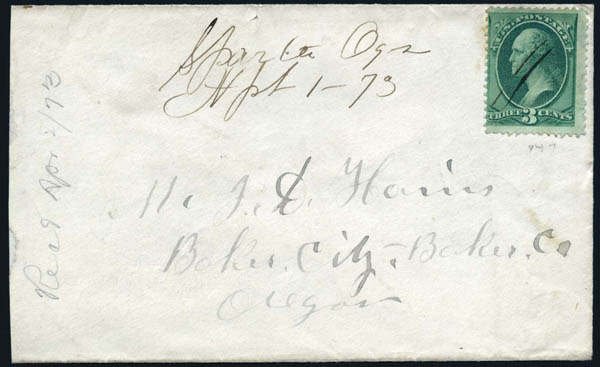 Sparta Ogn
Apl 1-73
U.S. POSTAGE
THREE 3 CENTS
Mr. J. Harris
Baker City, Baker, Co
Oregon
Recd Apr /73